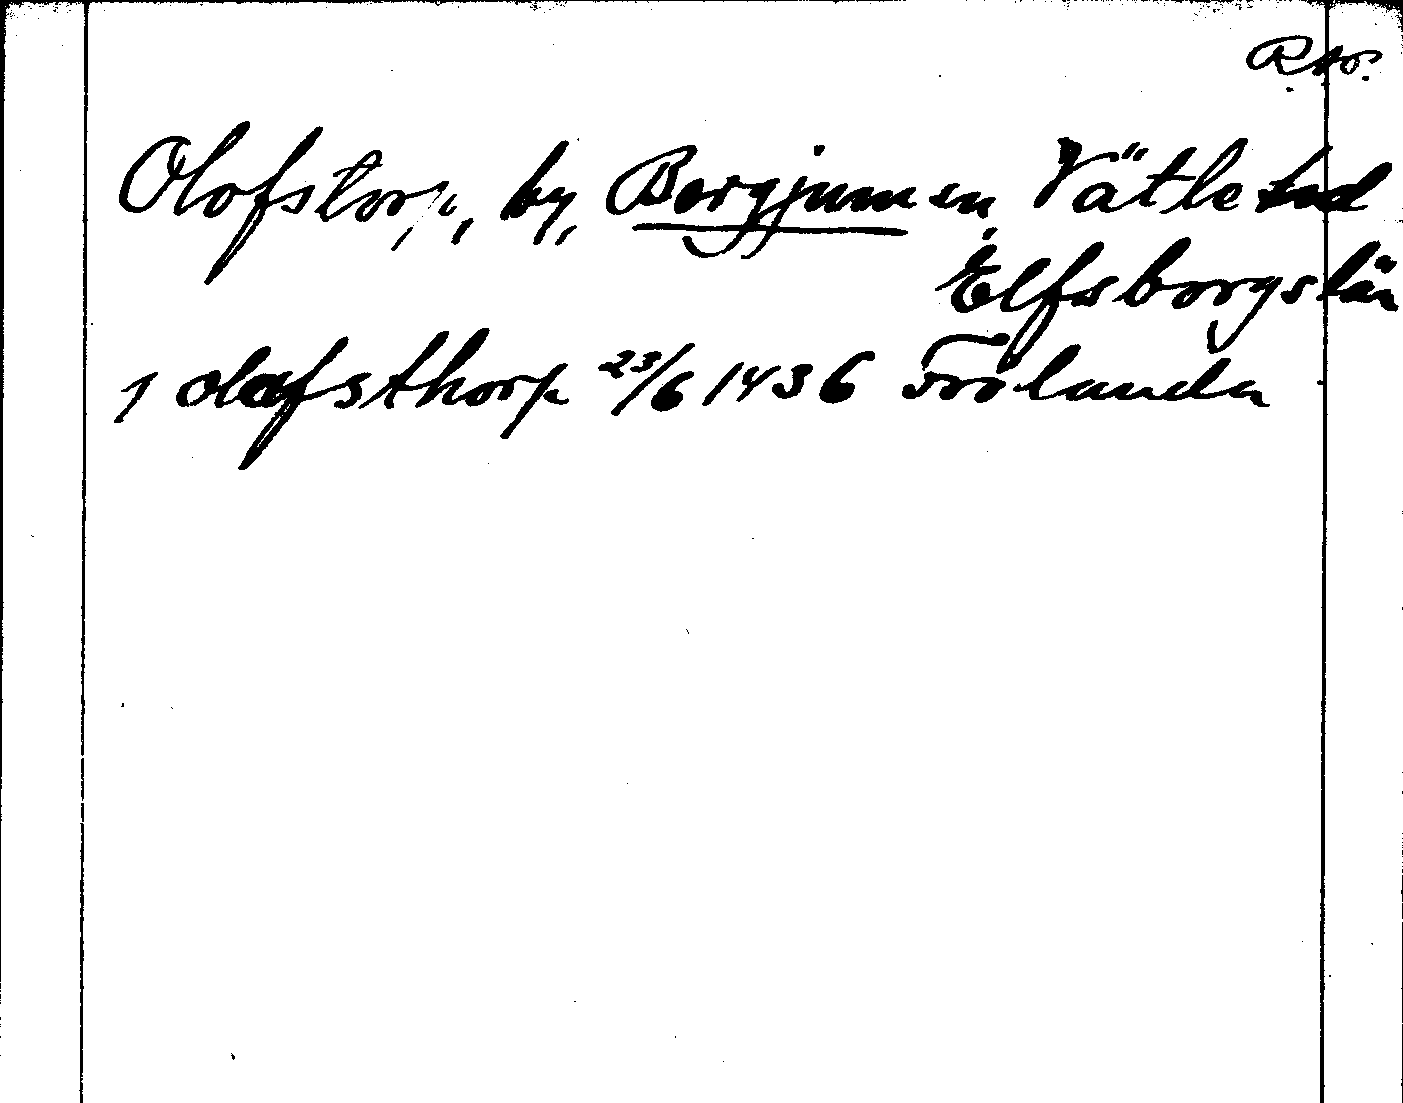 R.A.O.
Olofstorp, by, Bergjum sn, Vätle hd
Elfsborgs län
j olafsthorp 23/6 1436 Frölanda